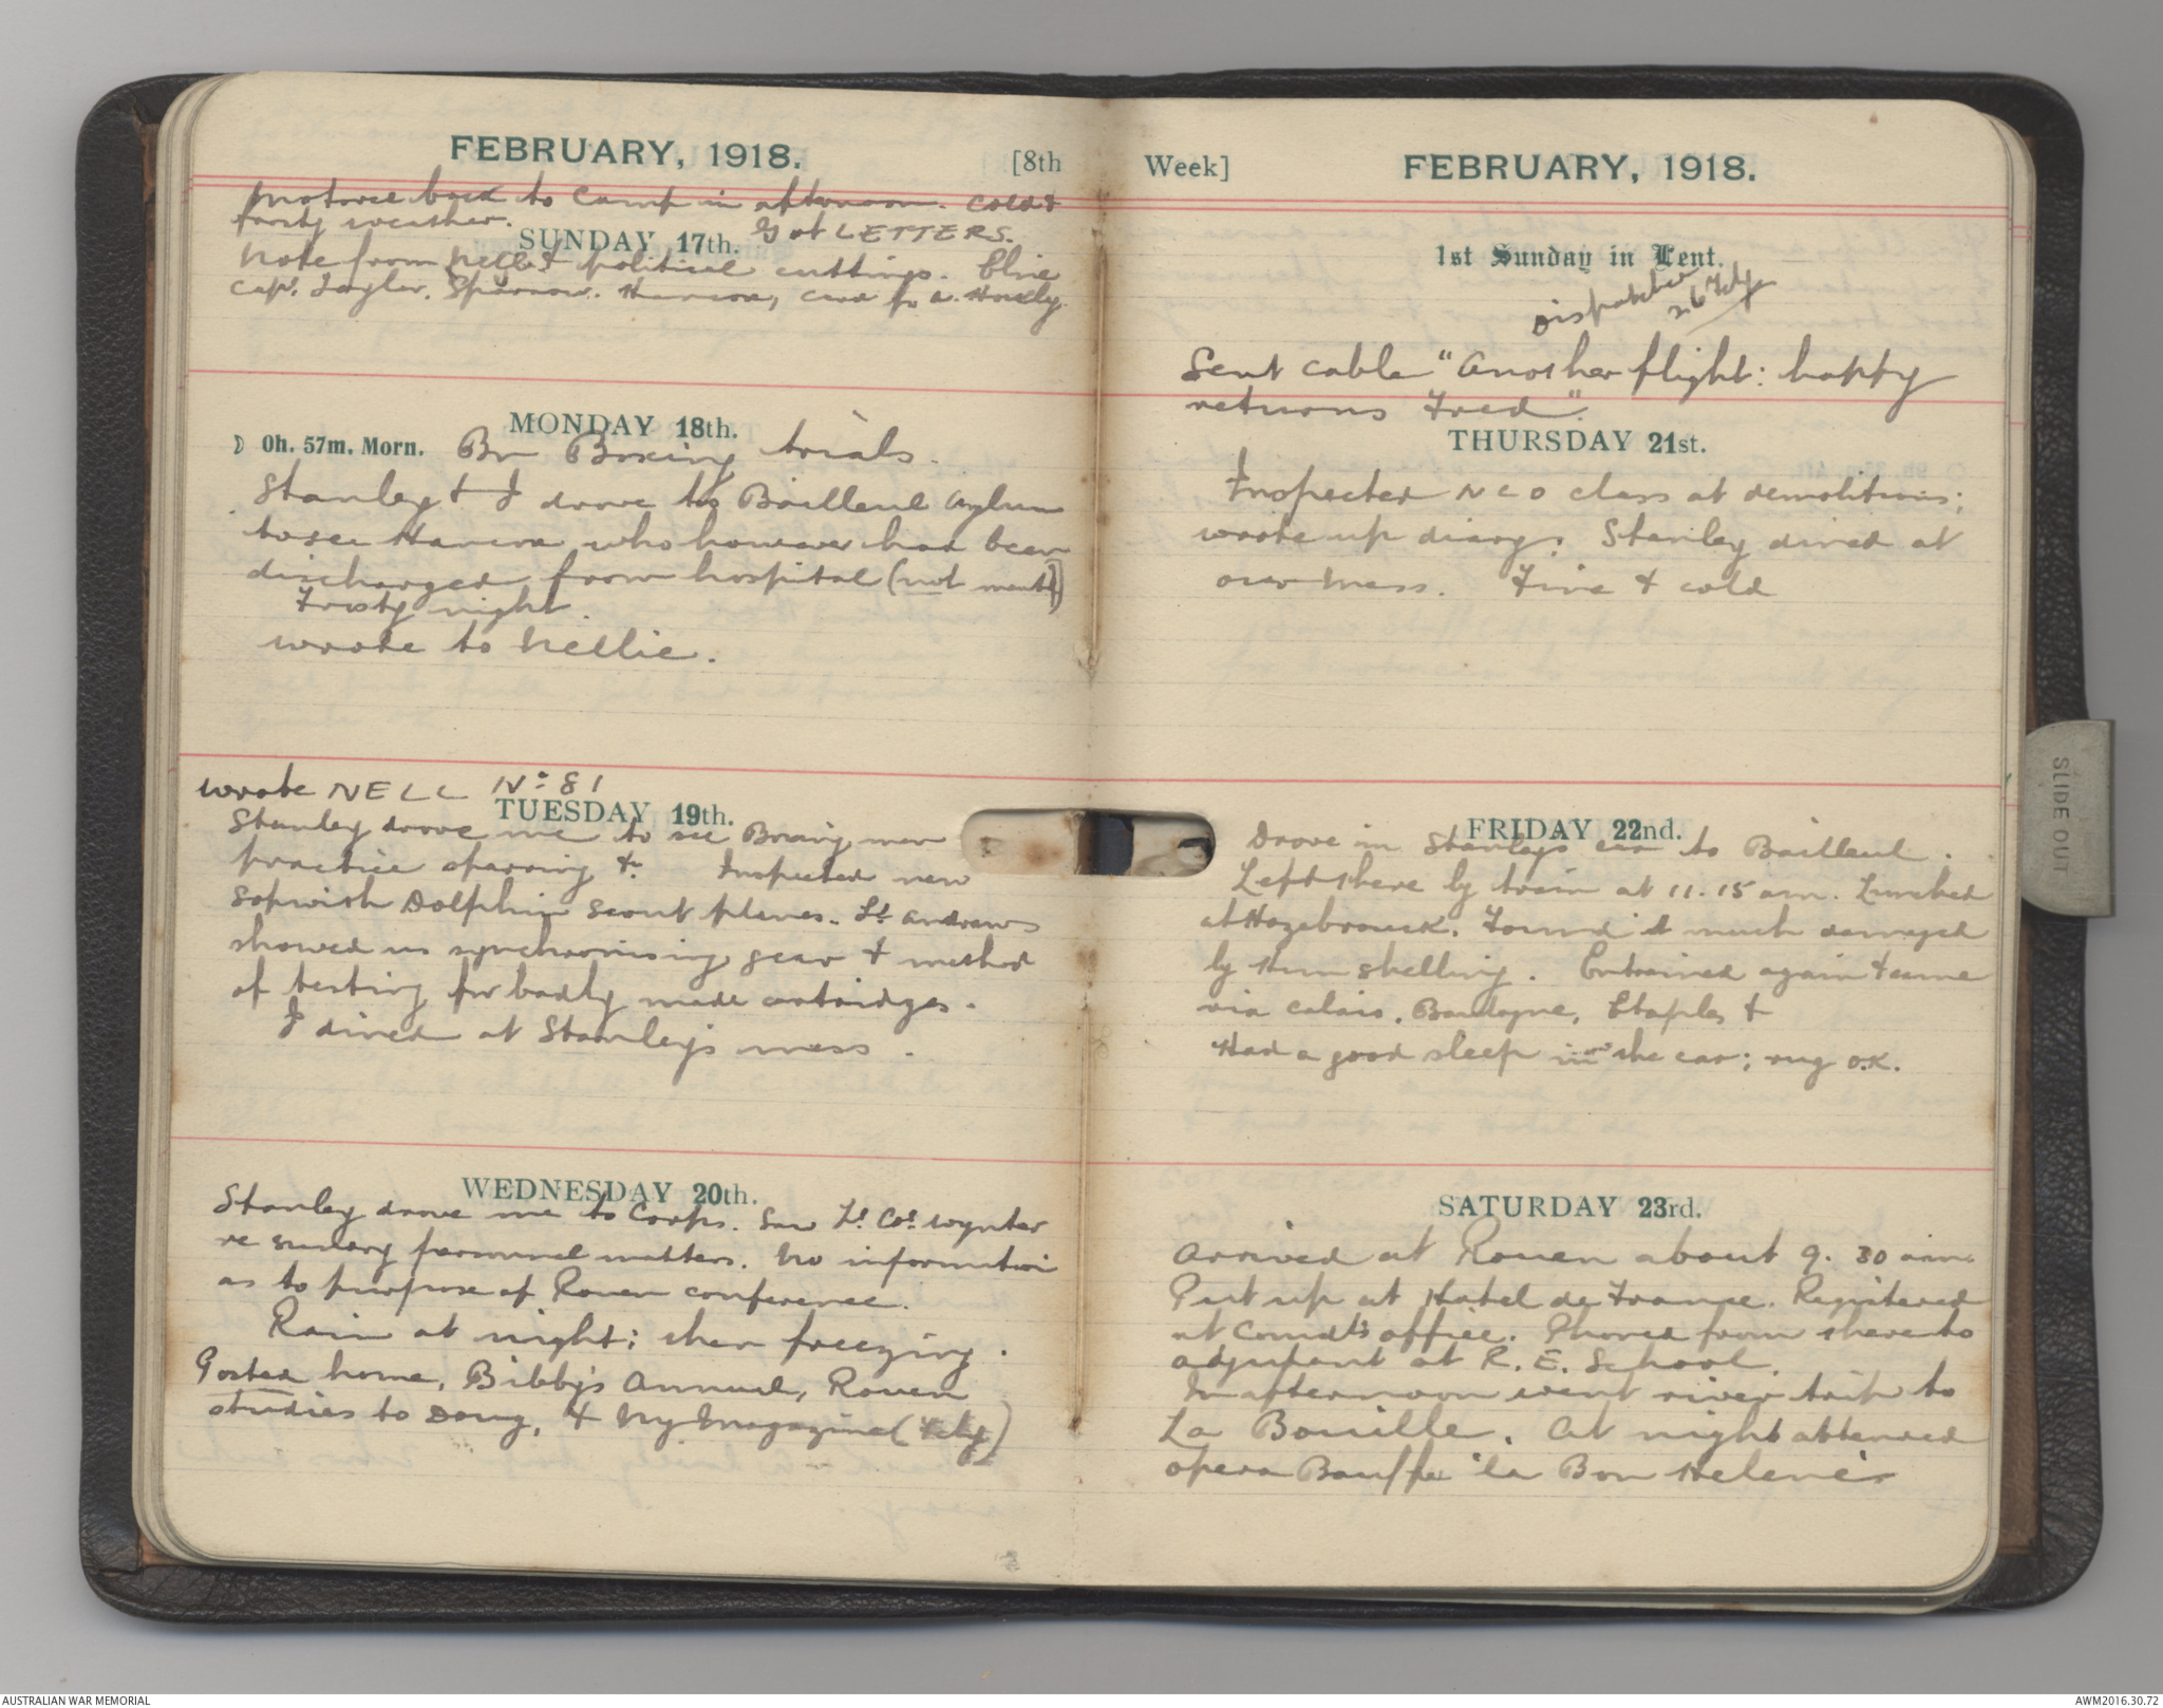 FEBRUARY, 1918. [8th
Motored back to Camp in afternoon. Cold &
frosty weather. Got LETTERS.
SUNDAY 17th.
Note from Nell & political cuttings. Elsie
Cap. Taylor, Sparrow. Hanson, card fr A.
MONDAY 18th.
☽ 0h. 57m. Morn. Bn Boxing trials.
Stanley & I drove to Bailleul Asylum
to see Hanson who however had been
discharged from hospital (not mental)
Frosty night.
wrote to Nellie.
wrote NELL No 81
TUESDAY 19th.
Stanley drove me to see Boxing men
practice sparring &c. Inspected new
Sopwith Dolphin scout planes. Lt Andrews
showed us synchronising gear & method
of testing for badly made cartridges.
I dined at Stanley's mess.
WEDNESDAY 20th.
Stanley drove me to Corps. Saw Lt Col Wynter
re sundry personnel matters. No information
as to purpose of Rouen conference.
Rain at night; then freezing.
Posted home, Bibby's Annual, Rouen
studies to Doug, & My Magazine (Feby)
Week] FEBRUARY, 1918.
1st Sunday in Lent.
Dispatched
26 Feby
Sent cable "Another flight: happy
returns Fred".
THURSDAY 21st.
Inspected NCO class at demolitions;
wrote up diary. Stanley dined at
our mess. Fine & cold
FRIDAY 22nd.
Drove in Stanleys car to Bailleul.
Left there by train at 11.15 am. Lunched
at Hazebrouck. Found it much damaged
by Hun shelling. Entrained again & came
via Calais, Boulogne, Etaples &
Had a good sleep in the car; rug O.K.
SATURDAY 23rd.
Arrived at Rouen about 9.30 am.
Put up at Hotel de France. Registered
at Comdt's office. Phoned from there to
adjutant at R.E. School.
In afternoon went river trip to
La Bouille. At night attended
opera Bouffe 'la Bon Helene's
SLIDE OUT
AUSTRALIAN WAR MEMORIAL
AWM2016.30.72